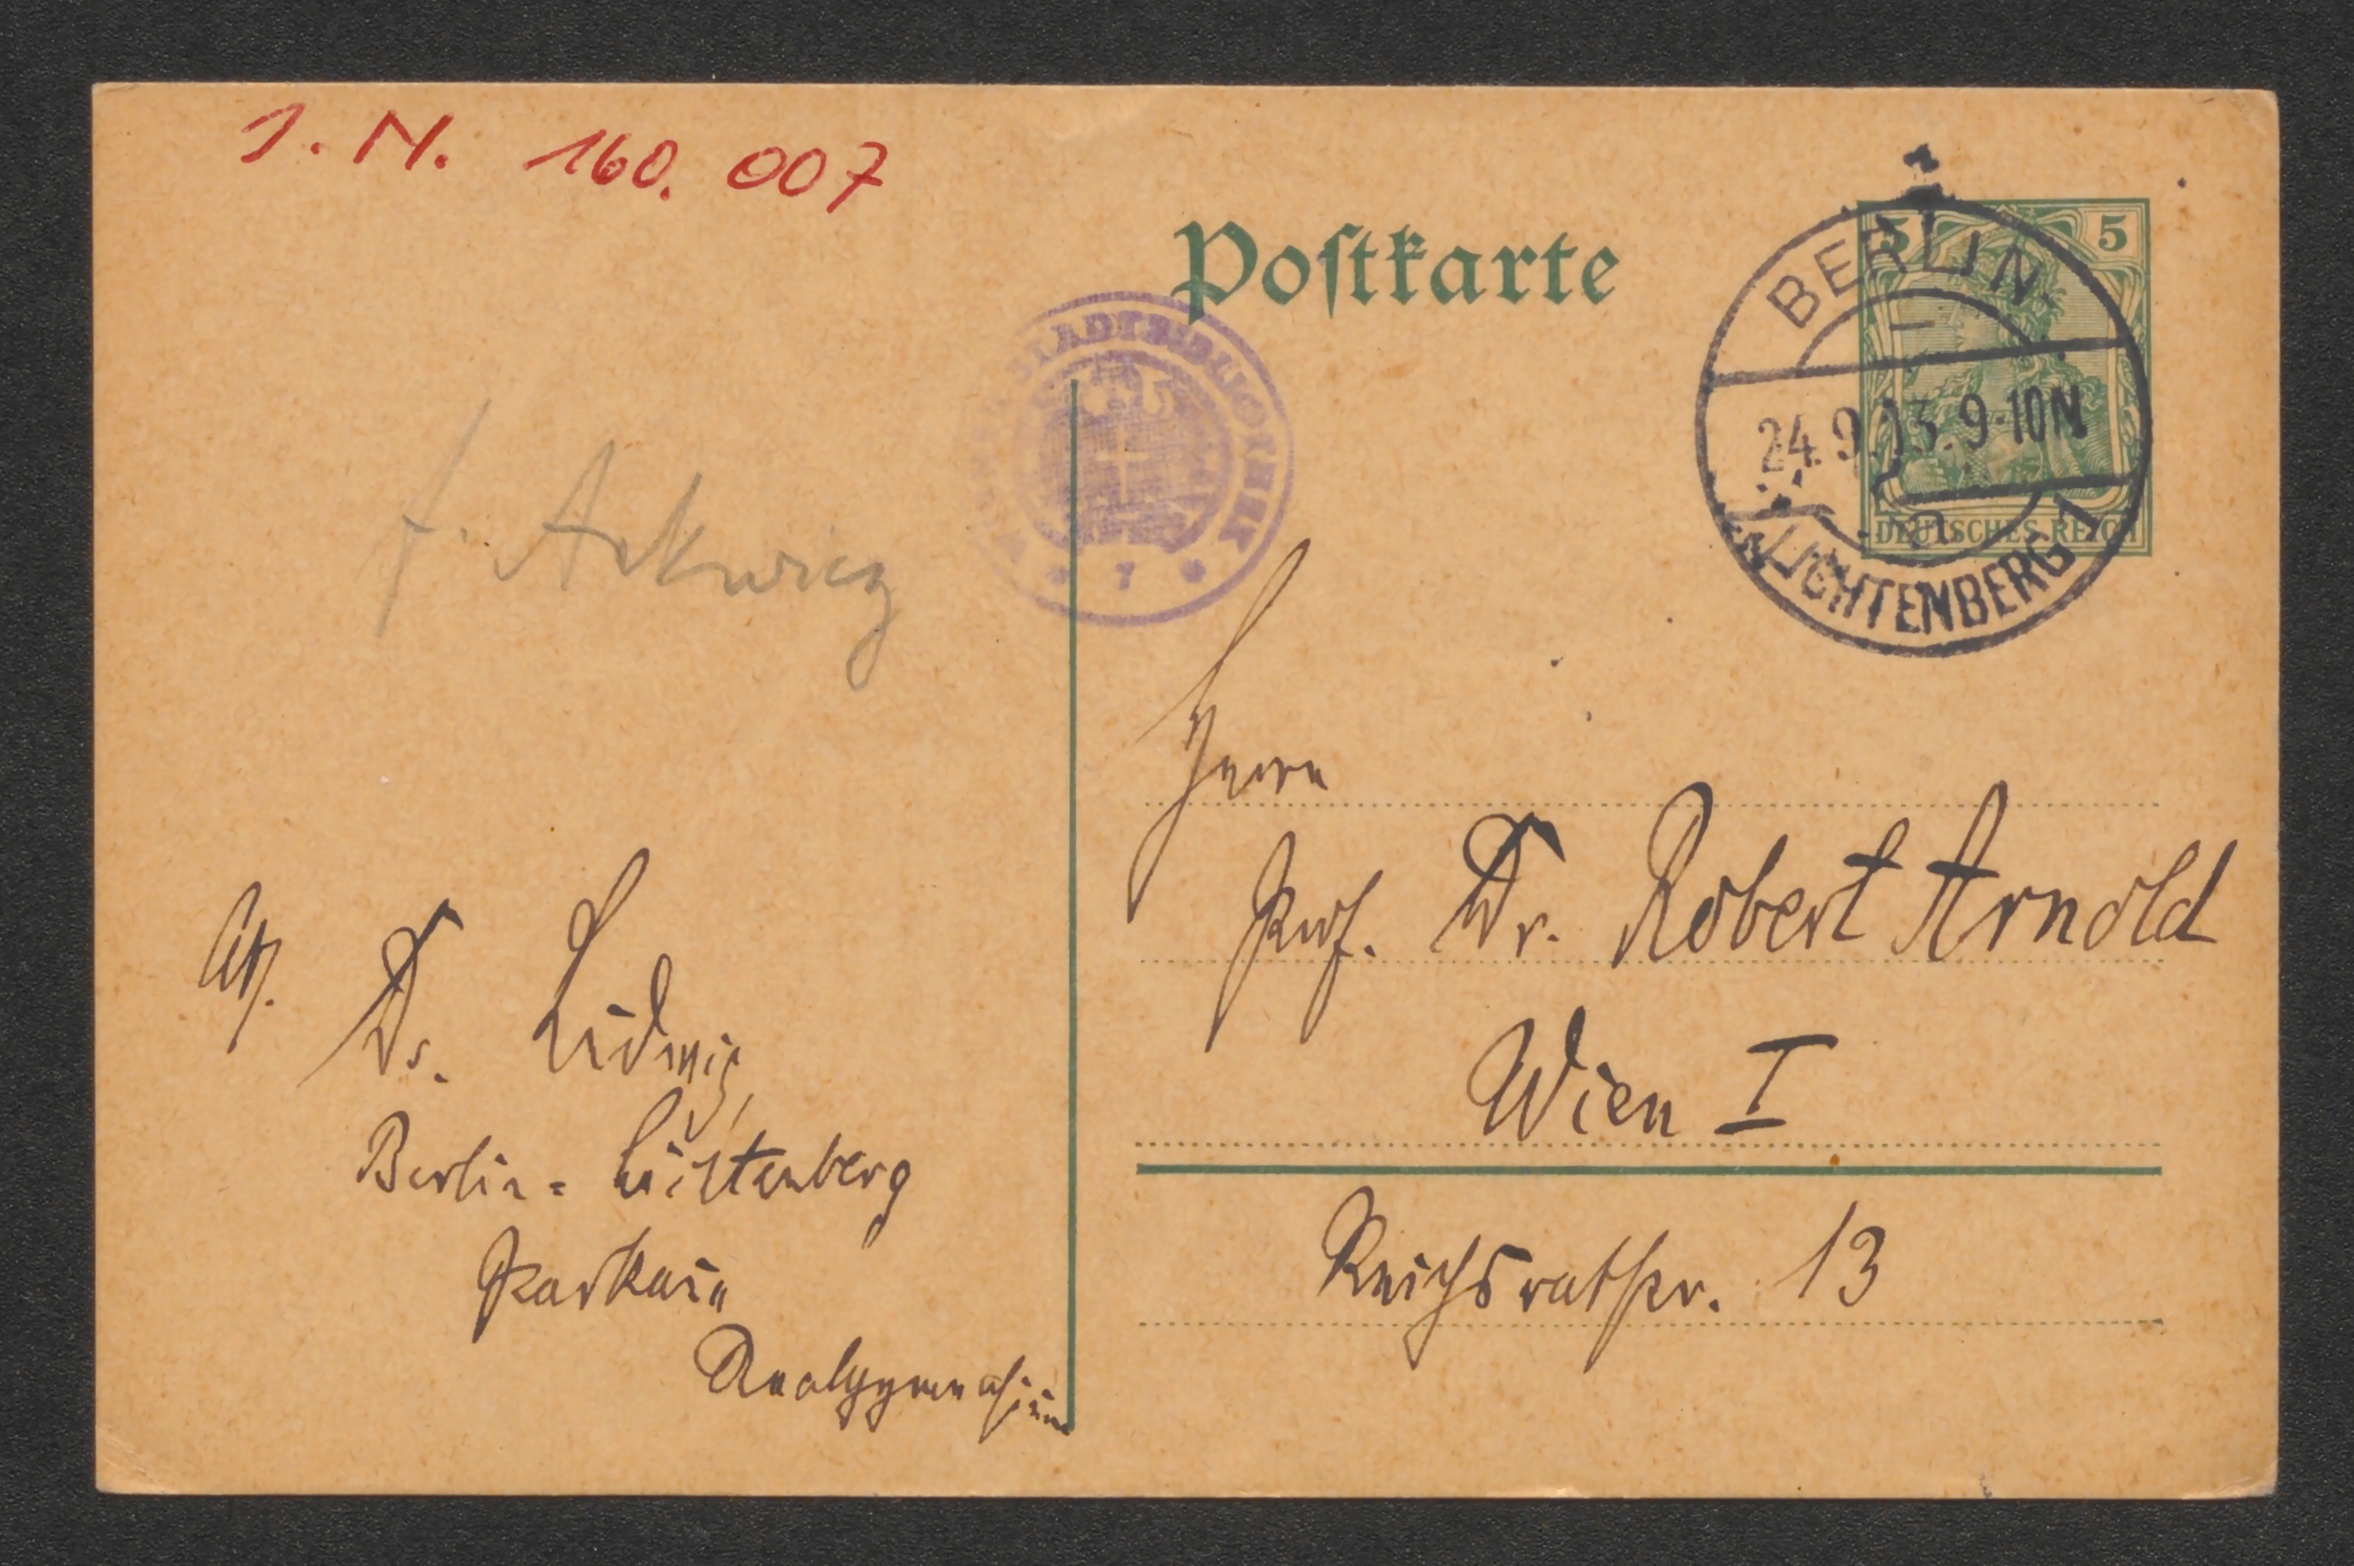 J. N. 160.007
Postkarte
5 5
DEUTSCHES REICH
BERLIN
24.9.13.9-10N
LICHTENBERG 1
a
STADTBIBLIOTHEK
* 7 *
f. Arkwicz
Herrn
Prof. Dr. Robert Arnold
Wien I
Reichsratstr. 13
Dr. Ludwig,
Berlin-Lichtenberg
Parkaue
Realgymnasium